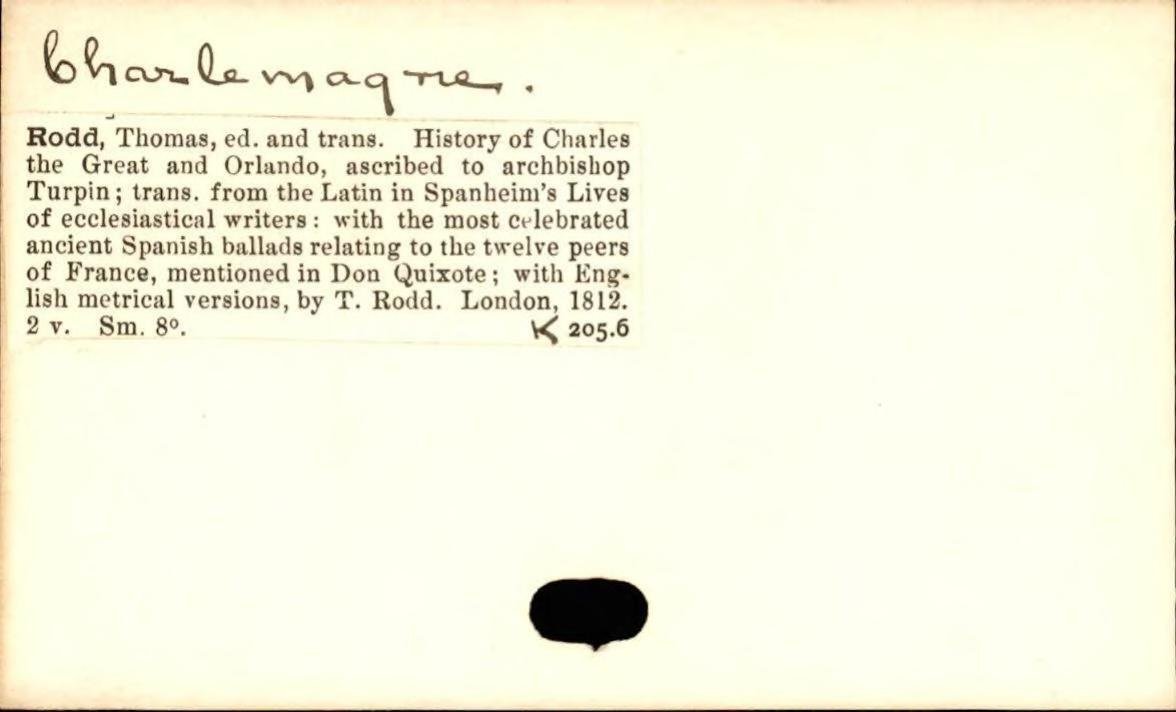 Charlemagne.
Rodd, Thomas, ed. and trans. History of Charles
the Great and Orlando, ascribed to archbishop
Turpin; trans. from the Latin in Spanheim's Lives
of ecclesiastical writers: with the most celebrated
ancient Spanish ballads relating to the twelve peers
of France, mentioned in Don Quixote; with Eng-
lish metrical versions, by T. Rodd. London, 1812.
2 v. Sm. 8º. K 205.6